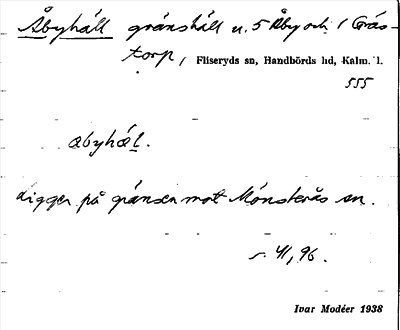 Åbyhäll gränshäll n. 5 Åby och 1 Gräs-
torp, Fliseryds sn, Handbörds hd, Kalm. l.
555
åbyhæl.
Ligger på gränsen mot Mönsterås sn.
s. 41, 96.
Ivar Modéer 1938